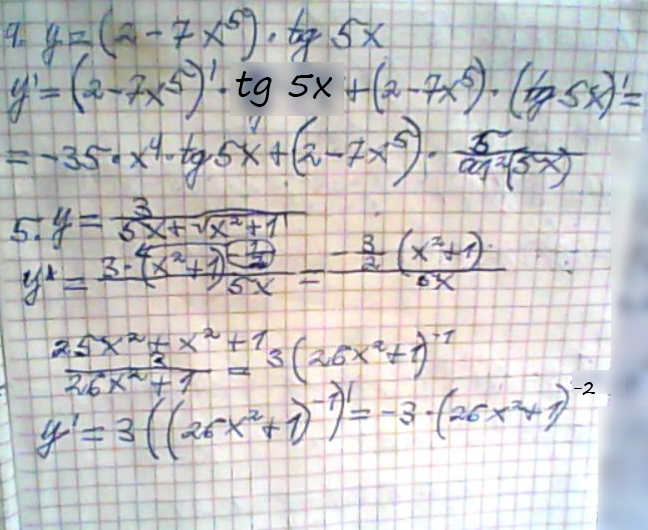 4. y = (2 - 7x⁵) · tg 5x
y' = (2-7x⁵)' · tg 5x + (2-7x⁵) · (tg 5x)' =
= -35 · x⁴ · tg 5x + (2-7x⁵) · 5/cos²(5x)
5. y = 3/(5x + √(x²+1))
y' = 3 · (x²+1) 1/2 / 5x = -3/2 (x²+1) / 5x
25x² + x² + 1
3/(26x²+1) = 3(26x²+1)⁻¹
y' = 3((26x²+1)⁻¹)' = -3 · (26x²+1)⁻²